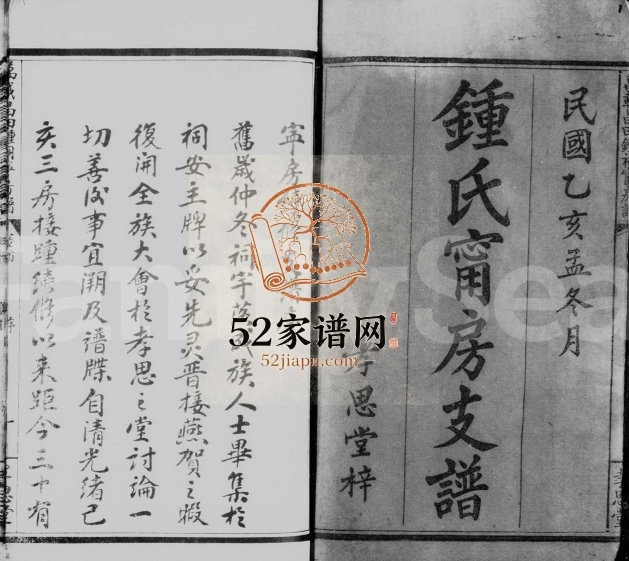 民國乙亥孟冬月
鍾氏甯房支譜
孝思堂梓
甯房
舊歲仲冬祠宇落成族人士畢集於
祠安主牌以妥先灵晋接燕賀之暇
復開全族大會於孝思之堂討論一
切善後事宜溯及譜牒自清光緒己
亥三房接踵續修以来距今三十有
孝思堂
52家谱网
52jiapu.com
FamilySea